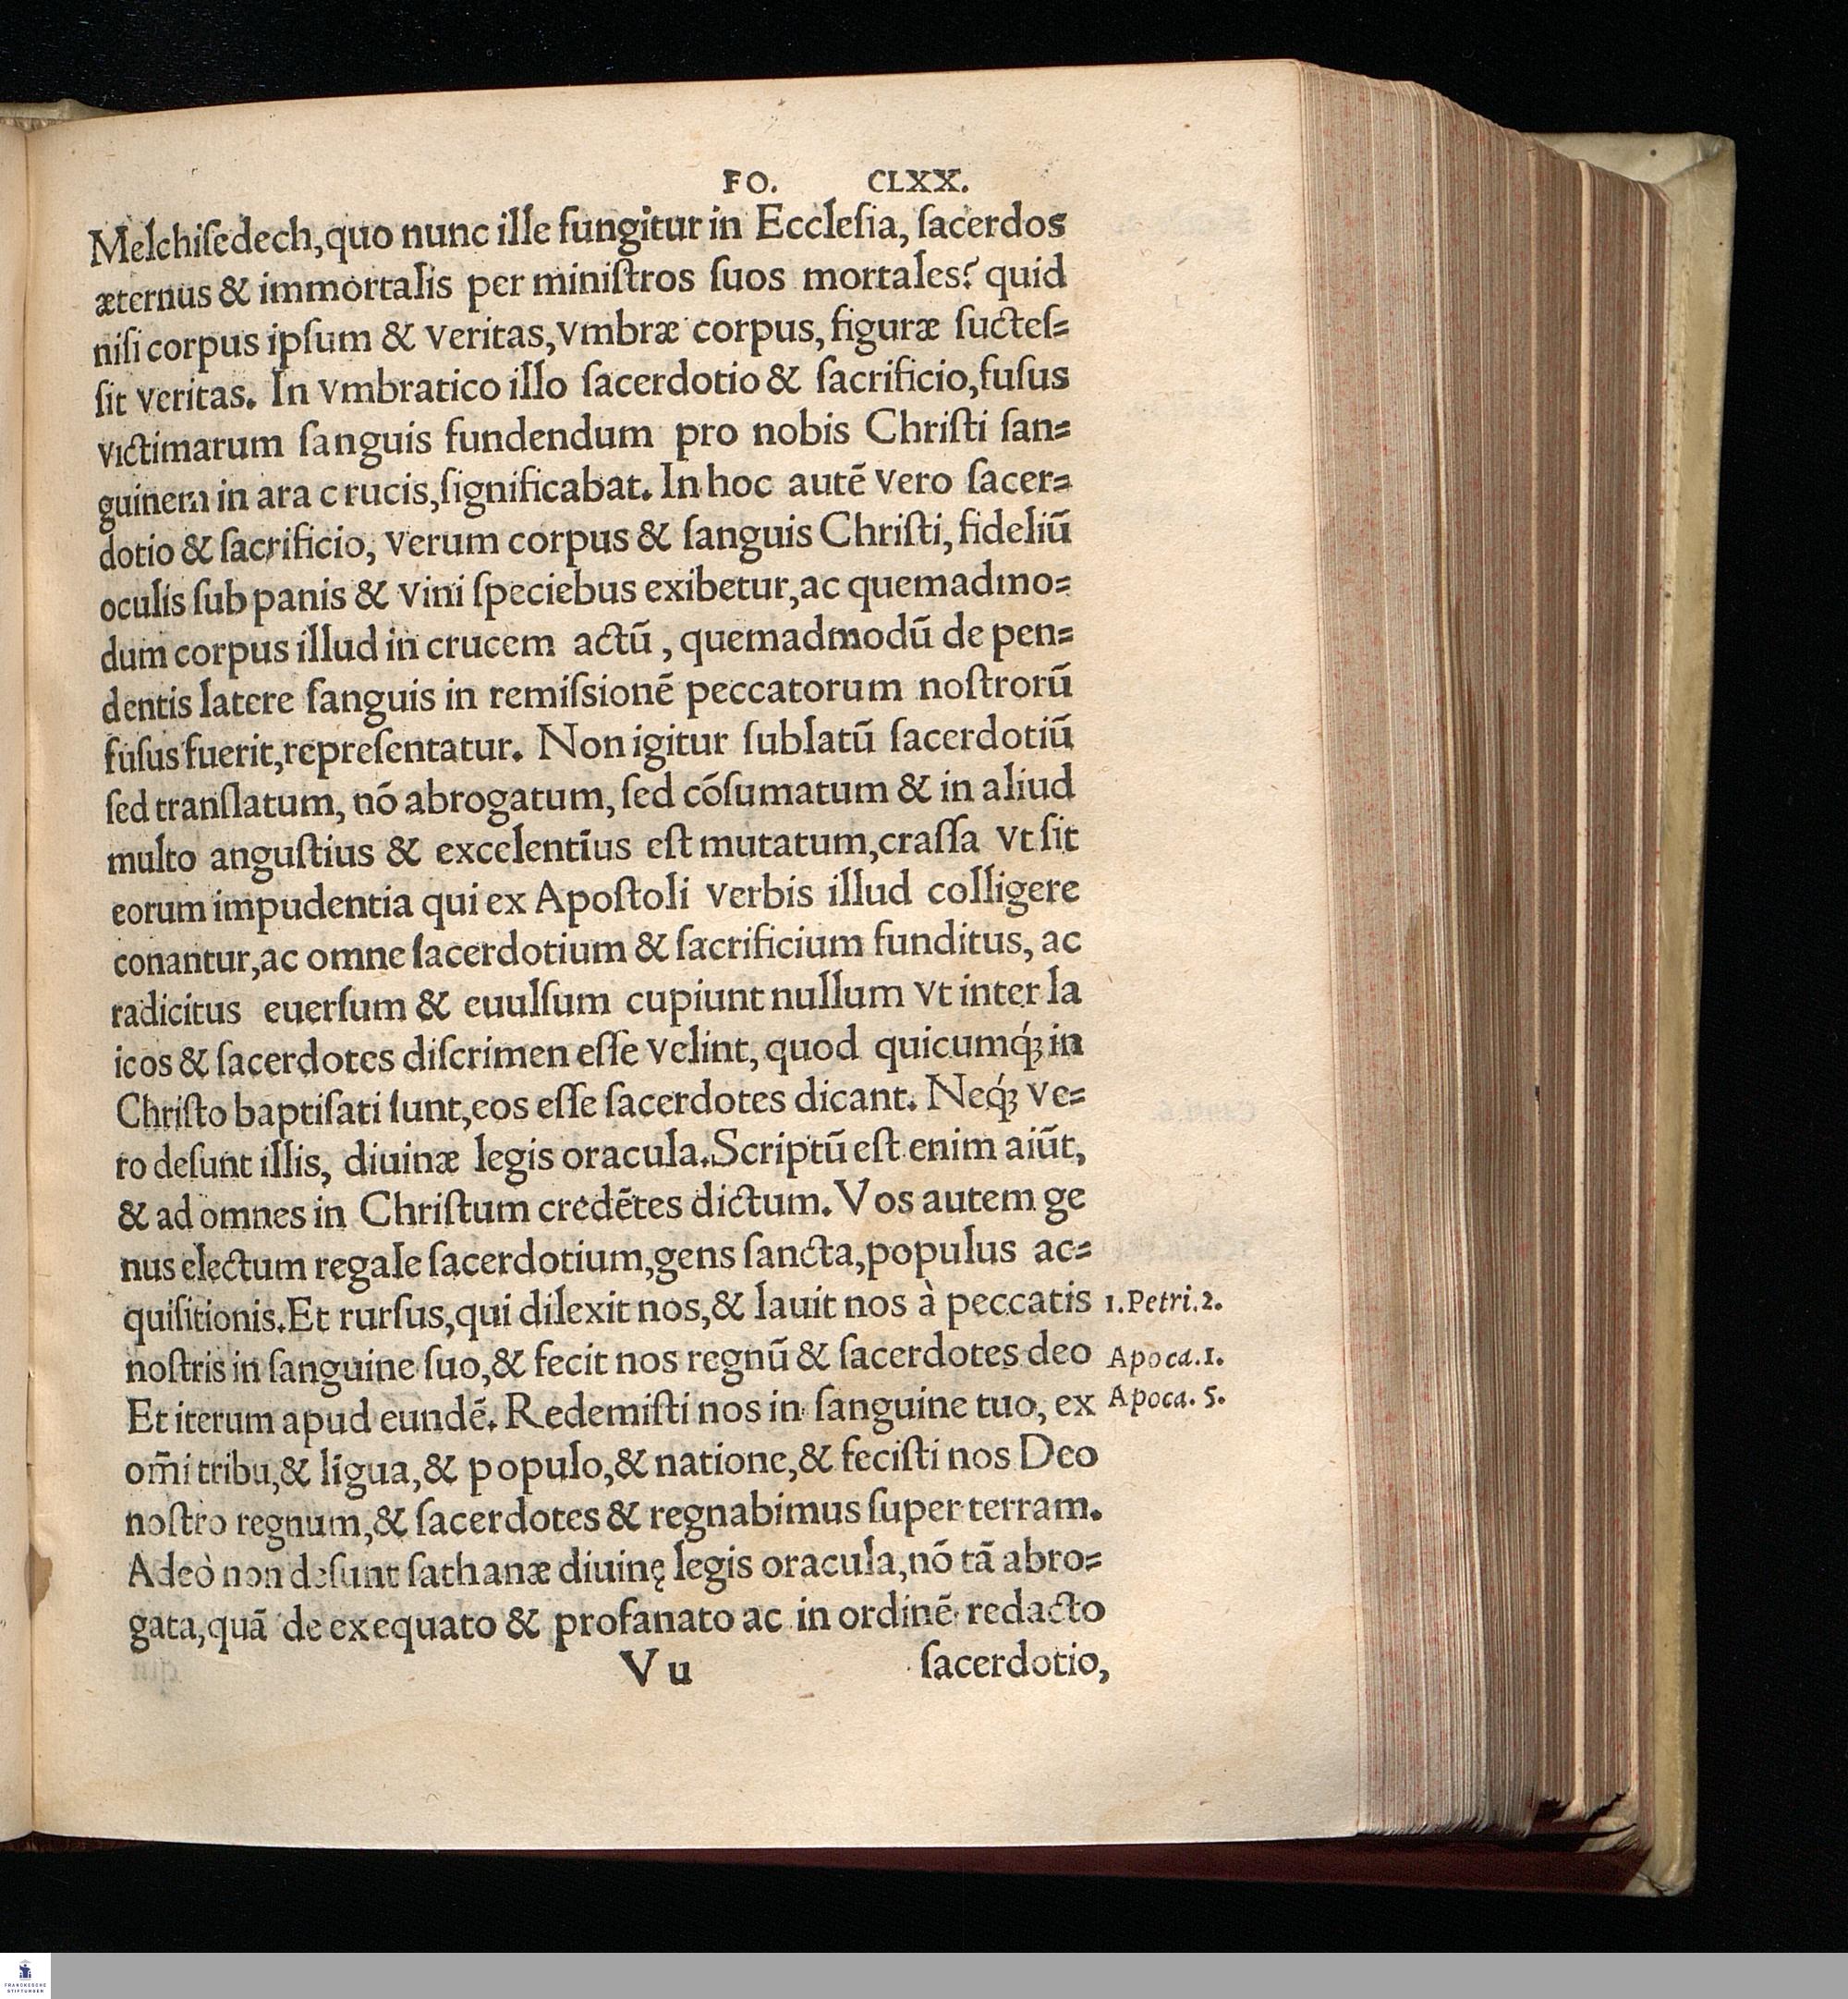 FO. CLXX.
Melchiſedech,quo nunc ille fungitur in Eccleſia, ſacerdos
æternus & immortalis per miniſtros ſuos mortales? quid
niſi corpus ipſum & veritas,vmbræ corpus, figuræ ſucteſ=
ſit veritas. In vmbratico illo ſacerdotio & ſacrificio,fuſus
victimarum ſanguis fundendum pro nobis Chriſti ſan=
guinem in ara c rucis,ſignificabat. In hoc autē vero ſacer=
dotio & ſacrificio, verum corpus & ſanguis Chriſti, fideliū
oculis ſub panis & vini ſpeciebus exibetur,ac quemadmo=
dum corpus illud in crucem actū , quemadmodū de pen=
dentis latere ſanguis in remiſsionē peccatorum noſtrorū
fuſus fuerit,repreſentatur. Non igitur ſublatū ſacerdotiū
ſed tranſlatum, nō abrogatum, ſed cōſumatum & in aliud
multo anguſtius & excelentius eſt mutatum,craſſa vt ſit
eorum impudentia qui ex Apoſtoli verbis illud colligere
conantur,ac omne ſacerdotium & ſacrificium funditus, ac
radicitus euerſum & euulſum cupiunt nullum vt inter la
icos & ſacerdotes diſcrimen eſſe velint, quod quicumq́; in
Chriſto baptiſati ſunt,eos eſſe ſacerdotes dicant. Neq́; ve=
ro deſunt illis, diuinæ legis oracula.Scriptū eſt enim aiūt,
& ad omnes in Chriſtum credētes dictum. Vos autem ge
nus electum regale ſacerdotium,gens ſancta,populus ac=
quiſitionis.Et rurſus,qui dilexit nos,& lauit nos à peccatis 1.Petri.2.
noſtris in ſanguine ſuo,& fecit nos regnū & ſacerdotes deo Apoca.1.
Et iterum apud eundē. Redemiſti nos in ſanguine tuo, ex Apoca. 5.
om̄i tribu,& līgua,& populo,& natione,& feciſti nos Deo
noſtro regnum,& ſacerdotes & regnabimus ſuper terram.
Adeò non deſunt ſathanæ diuinę legis oracula,nō tā abro=
gata,quā de exequato & profanato ac in ordinē redacto
V u ſacerdotio,
FRANCKESCHE
STIFTUNGEN